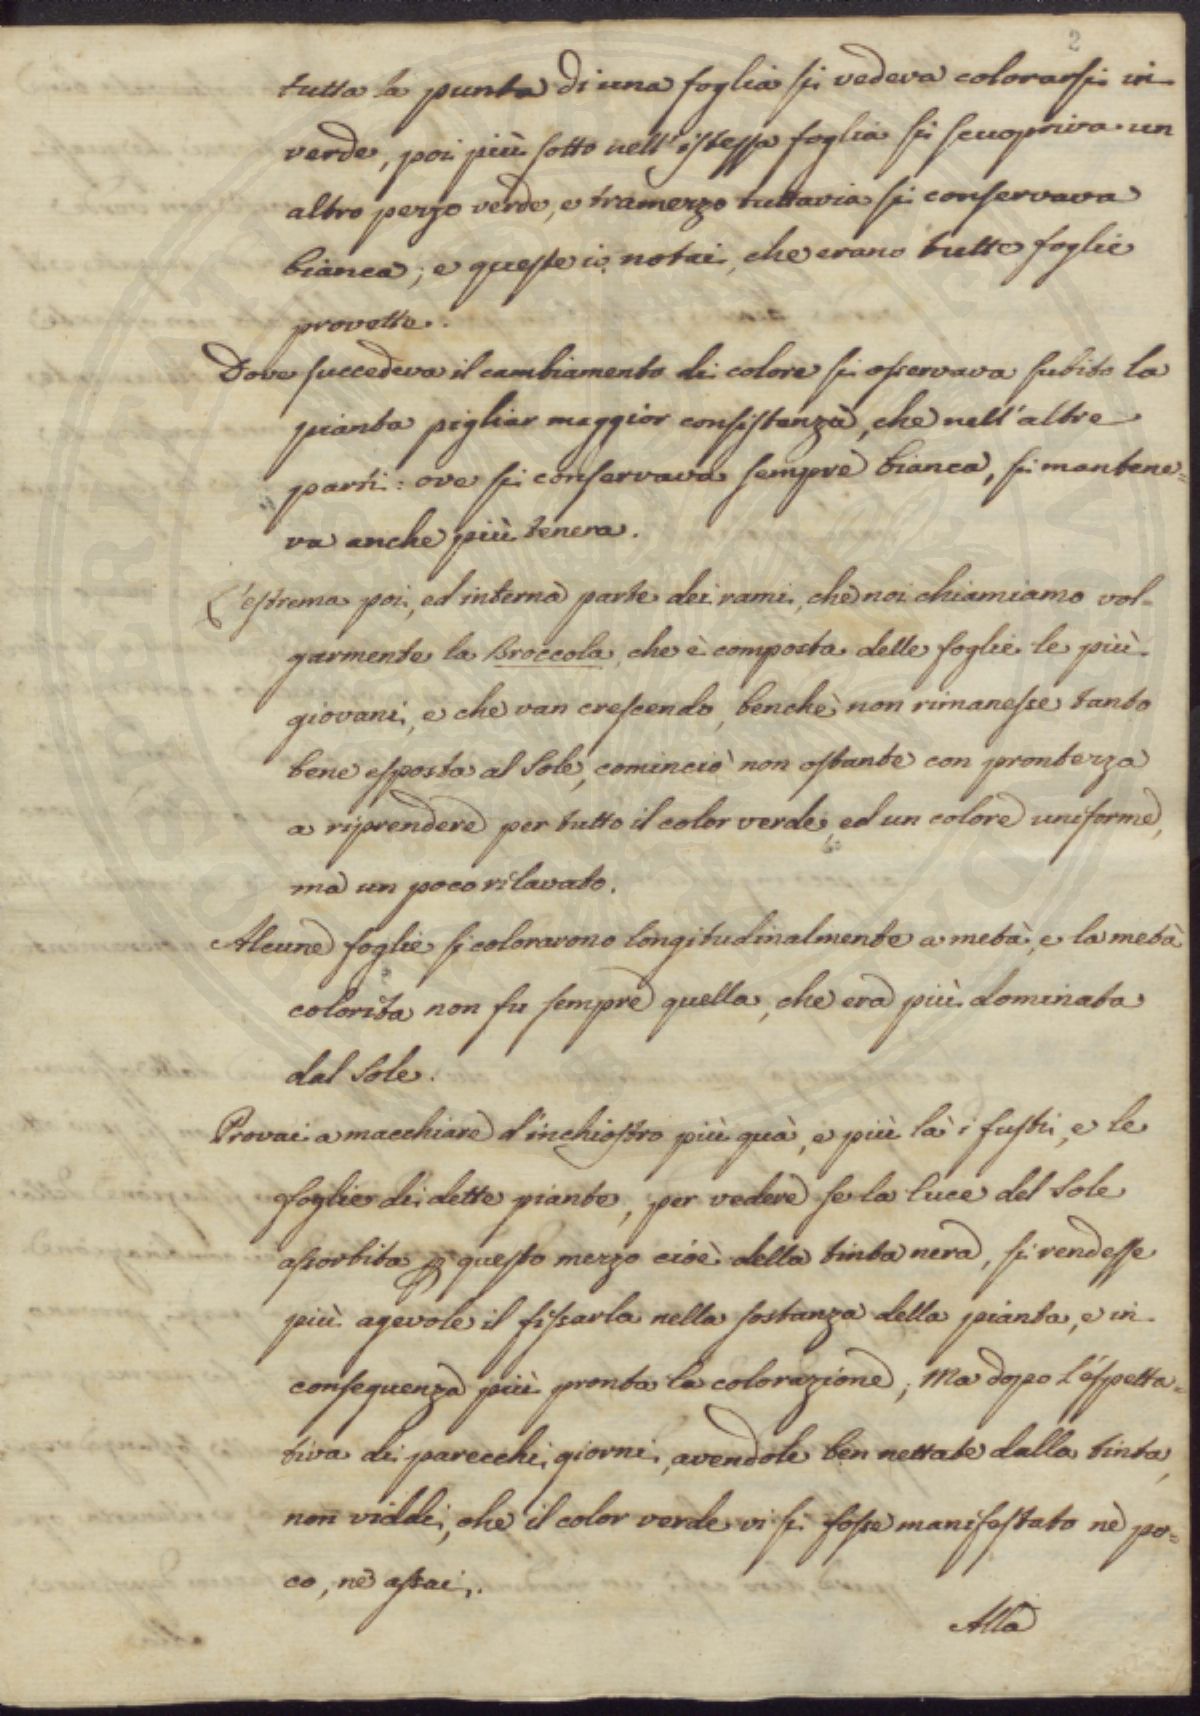 2
tutta la punta di una foglia si vedeva colorarsi in
verde, poi più sotto nell'istessa foglia si scuopriva un
altro pezzo verde, e tramezzo tuttavia si conservava
bianca; e queste io notai, che erano tutte foglie
provette.
Dove succedeva il cambiamento di colore si osservava subito la
pianta pigliar maggior consistenza, che nell'altre
parti: ove si conservava sempre bianca, si mantene=
va anche più tenera.
L'estrema poi, ed interna parte dei rami, che noi chiamiamo vol=
garmente la Broccola, che è composta delle foglie le più
giovani, e che van crescendo, benchè non rimanesse tanto
bene esposta al Sole, cominciò non ostante con prontezza
a riprendere per tutto il color verde, ed un colore uniforme,
ma un poco rilavato.
Alcune foglie si colorarono longitudinalmente a metà, e la metà
colorita non fu sempre quella, che era più dominata
dal Sole.
Provai a macchiare d'inchiostro più quà, e più là i fusti, e le
foglie di dette piante, per vedere se la luce del Sole
assorbita p questo mezzo cioè della tinta nera, si rendesse
più agevole il fissarla nella sostanza della pianta, e in
conseguenza più pronta la colorazione; Ma dopo l'espetta=
tiva di parecchi giorni, avendole ben nettate dalla tinta,
non viddi, che il color verde vi si fosse manifestato nè po=
co, nè assai.
Alla